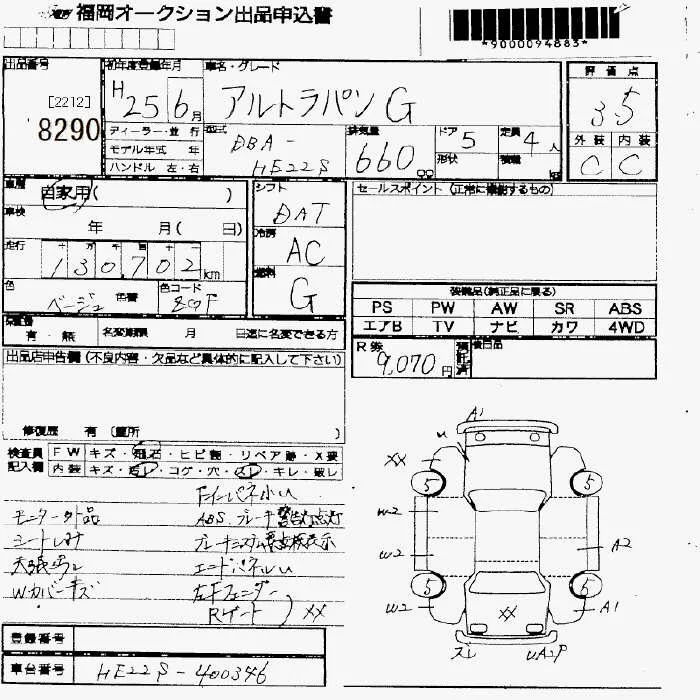 福岡オークション出品申込書
*9000094883*
出品番号
[2212]
8290
初年度登録年月
H 25 6月
ディーラー・並行
モデル年式 年
ハンドル 左・右
車名・グレード
アルトラパン G
型式
DBA-
HE22S
排気量
660 cc
ドア 5
形状
定員 4人
積載 kg
評価点
3.5
外装 内装
C C
車歴
自家用( )
車検
年 月( 日)
走行
十 万 千 百 十
130,702 km
色
ベージュ 色替
色コード
シフト
DAT
冷房
AC
燃料
G
セールスポイント (正常に稼動するもの)
装備品(純正品に限る)
PS PW AW SR ABS
エアB TV ナビ カワ 4WD
有・無
名変期限 月 日迄に名変できる方
R券
9,070円
預託済
後日品
出品店申告欄 (不良内容・欠品など具体的に記入して下さい)
修復歴 有 (箇所
検査員 FW キズ・飛石・ヒビ割・リペア跡・X要
記入欄 内装 キズ・汚レ・コゲ・穴・スレ・キレ・破レ
Fインパネ小U
モニター欠品
ABS、ブレーキ警告灯点灯
シートしみ
天張汚レ
エンドパネルU
Wカバーキズ
左Fフェンダー
Rゲート XX
A1
U
XX
5
5
W2
W2
A2
5
5
W2
XX
A1
ズレ
UA2P
登録番号
車台番号 HE22S-400346